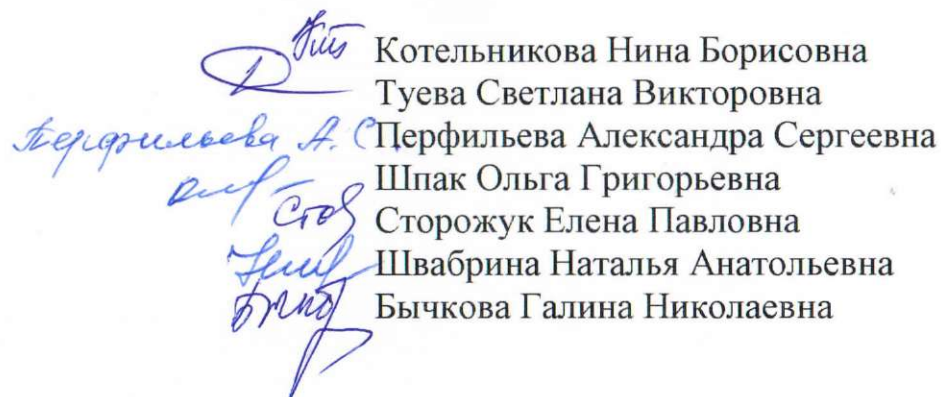 Котельникова Нина Борисовна
Туева Светлана Викторовна
Перфильева А. С. Перфильева Александра Сергеевна
Шпак Ольга Григорьевна
Сторожук Елена Павловна
Швабрина Наталья Анатольевна
Бычкова Галина Николаевна